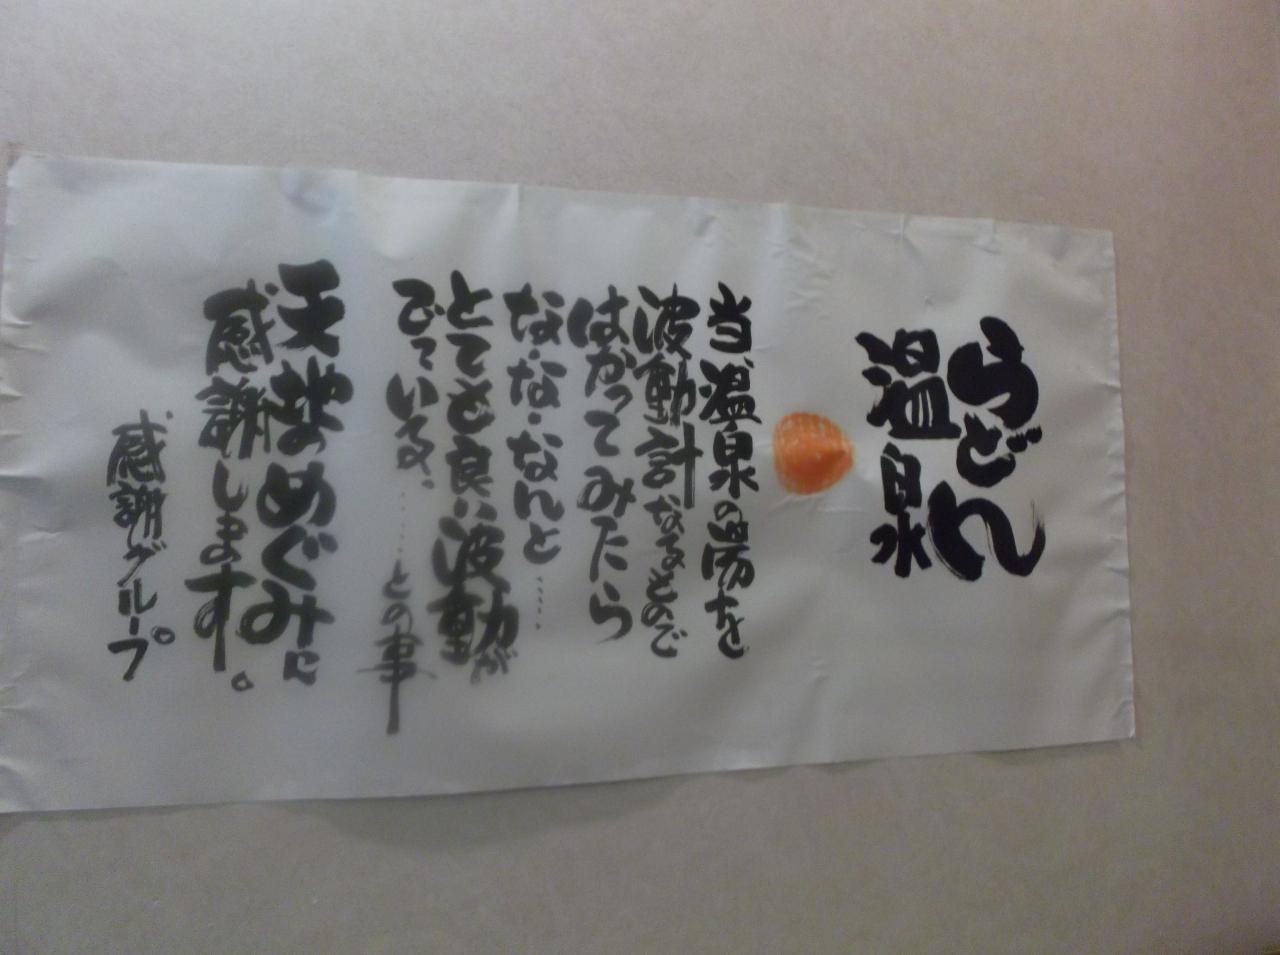 うどん
温泉
当温泉の湯を
波動計なるもので
はかってみたら
な・な・なんと……
とても良い波動が
でている、……との事
天地のめぐみに
感謝します。
感謝グループ